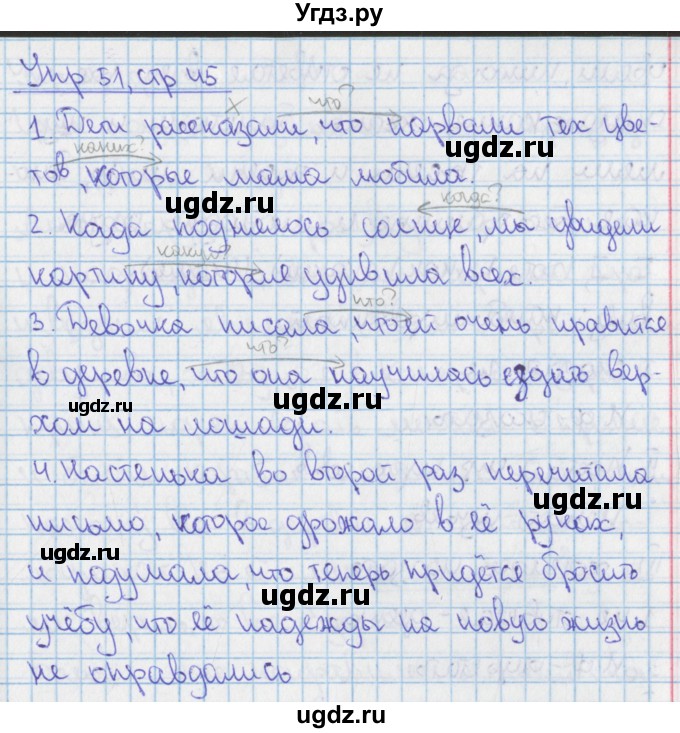 Угдз.ру
Упр 51, стр 45
х что?
1. Дети рассказали, что нарвали тех цве-
каких?
тов, которые мама любила.
ugdz.ru
когда?
2. Когда поднялось солнце, мы увидели
какую?
картину, которая удивила всех.
ugdz.ru
что?
3. Девочка писала, что ей очень нравится
что?
в деревне, что она научилась ездить вер-
ugdz.ru ugdz.ru
хом на лошади.
4. Настенька во второй раз перечитала
ugdz.ru
письмо, которое дрожало в её руках,
ugdz.ru
и подумала, что теперь придётся бросить
ugdz.ru
учёбу, что её надежды на новую жизнь
не оправдались
ugdz.ru
ugdz.ru